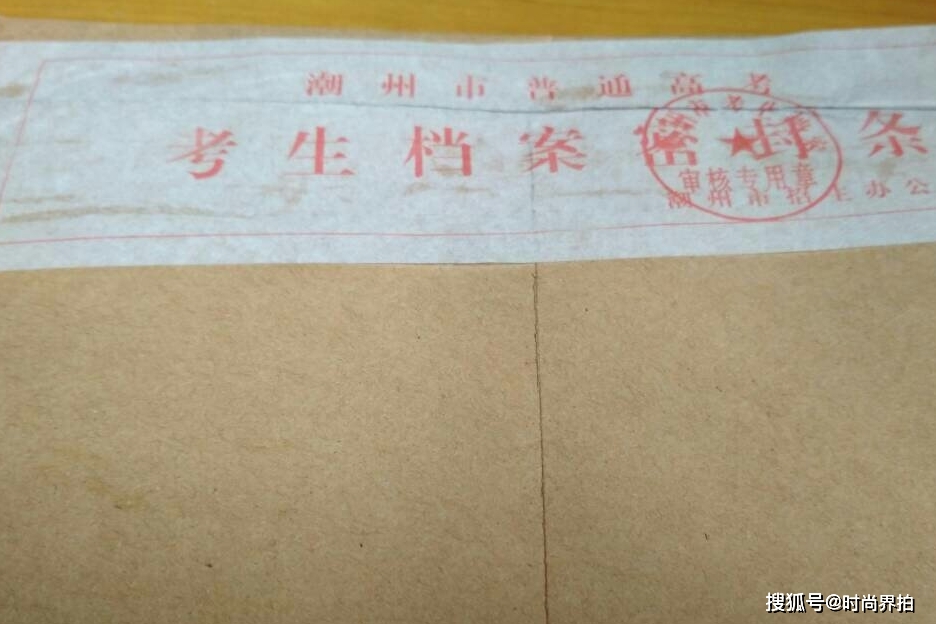 潮州市普通高考
考生档案密封条
审核专用章
潮州市招生办公
搜狐号@时尚界拍